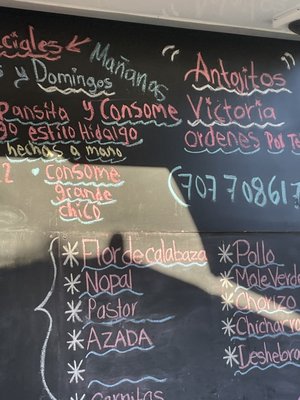 ciales
s y Domingos
Mañanas
Pansita y Consome
go estilo Hidalgo
hechos a mano
2
consome
grande
chico
"Antojitos
Victoria
ordenes Pol Te
(707 708617
* Flor de calabaza
* Nopal
* Pastor
* AZADA
*
Carnitas
* Pollo
* MoleVerde
* Chorizo
* Chicharr
* Deshebra